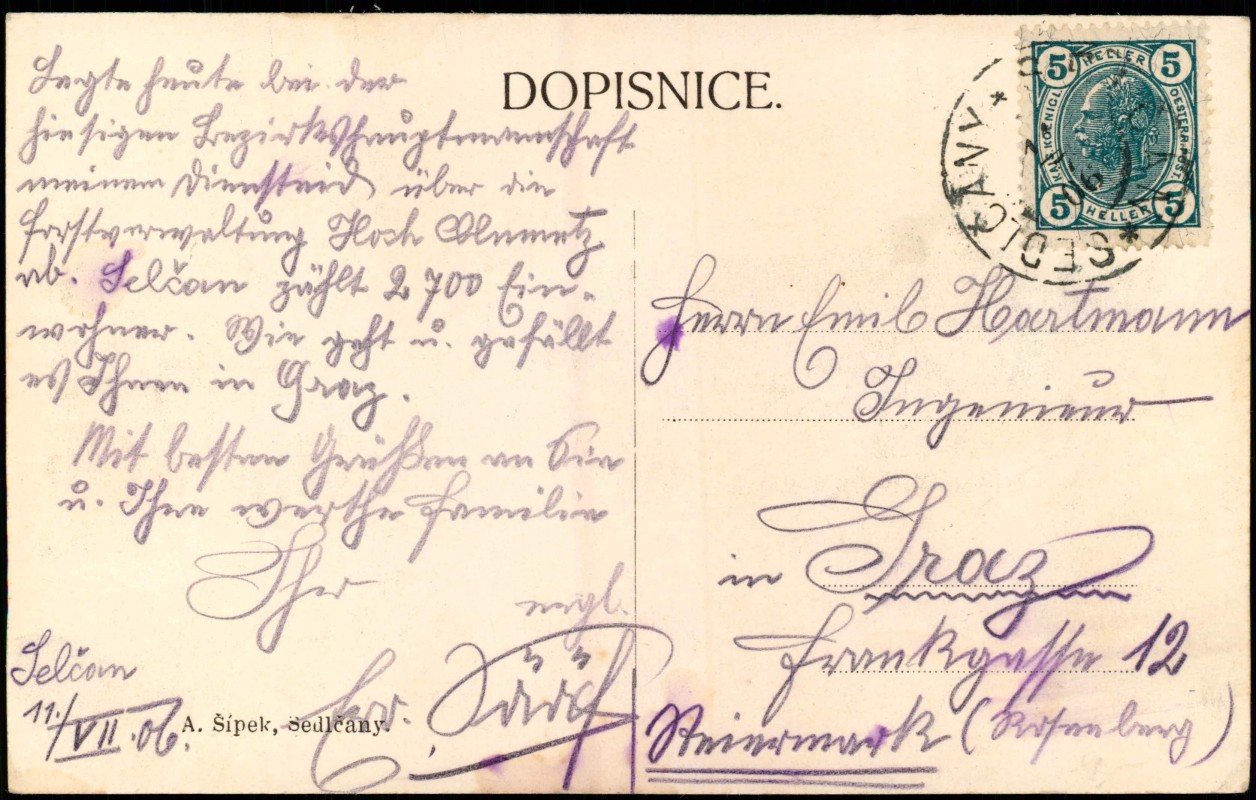 Legte heute bei der
hiesigen Bezirkshauptmannschaft
meinen Diensteid über die
Forstverwaltung Hoch
ab. Selčan zählt 2700 Ein-
wohner. Wie geht u. gefällt
es Ihnen in Graz.
Mit besten Grüßen an Sie
u. Ihre werthe Familie
Ihr
ergl.
Selčan
11./VII.06.
A. Šípek, Sedlčany.
DOPISNICE.
5 HELLER 5
KAIS. KOENIGL. OESTERR. POST.
5 HELLER 5
SEDLČANY
06
Herrn Emil Hartmann
Ingenieur
in Graz
Frankgasse 12
Steiermark (Rosenberg)